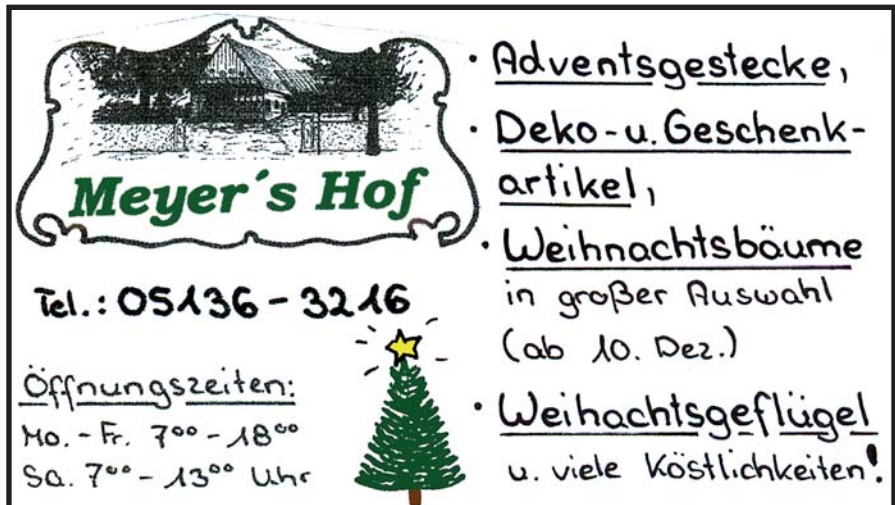 Meyer´s Hof
Tel.: 05136-3216
Öffnungszeiten:
Mo.-Fr. 7⁰⁰-18⁰⁰
Sa. 7⁰⁰-13⁰⁰ Uhr
· Adventsgestecke,
· Deko-u. Geschenk-
artikel,
· Weihnachtsbäume
in großer Auswahl
(ab 10. Dez.)
· Weihachtsgeflügel
u. viele Köstlichkeiten!